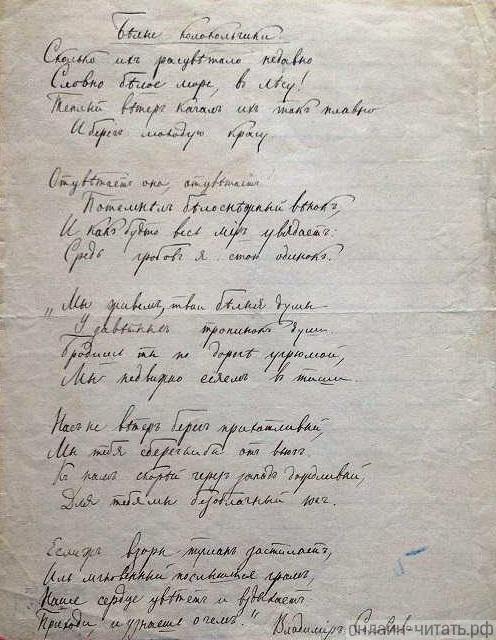 Бѣлые колокольчики.
Сколько ихъ расцвѣтало недавно
Словно бѣлое море, въ лѣсу!
Теплый вѣтеръ качалъ ихъ такъ плавно
И берегъ молодую красу.
Отцвѣтаетъ она, отцвѣтаетъ
Потемнѣлъ бѣлоснѣжный вѣнокъ,
И какъ будто весь міръ увядаетъ.
Средь гробовъ я стою одинокъ.
„Мы живемъ, твои бѣлыя думы
У завѣтныхъ тропинокъ души.
Бродишь ты по дорогѣ угрюмой,
Мы недвижно сіяемъ въ тиши.
Насъ не вѣтеръ берегъ прихотливый,
Мы тебя сберегли бы отъ вьюгъ.
Къ намъ скорѣй чрезъ западъ дождливый,
Для тебя мы безоблачный югъ.
Если жъ взоры туманъ застилаетъ,
Иль мгновенный послышался громъ,
Наше сердце цвѣтетъ и вздыхаетъ
Приходи, и узнаешь о чемъ."
Владиміръ Соловьевъ
онлайн-читать.рф